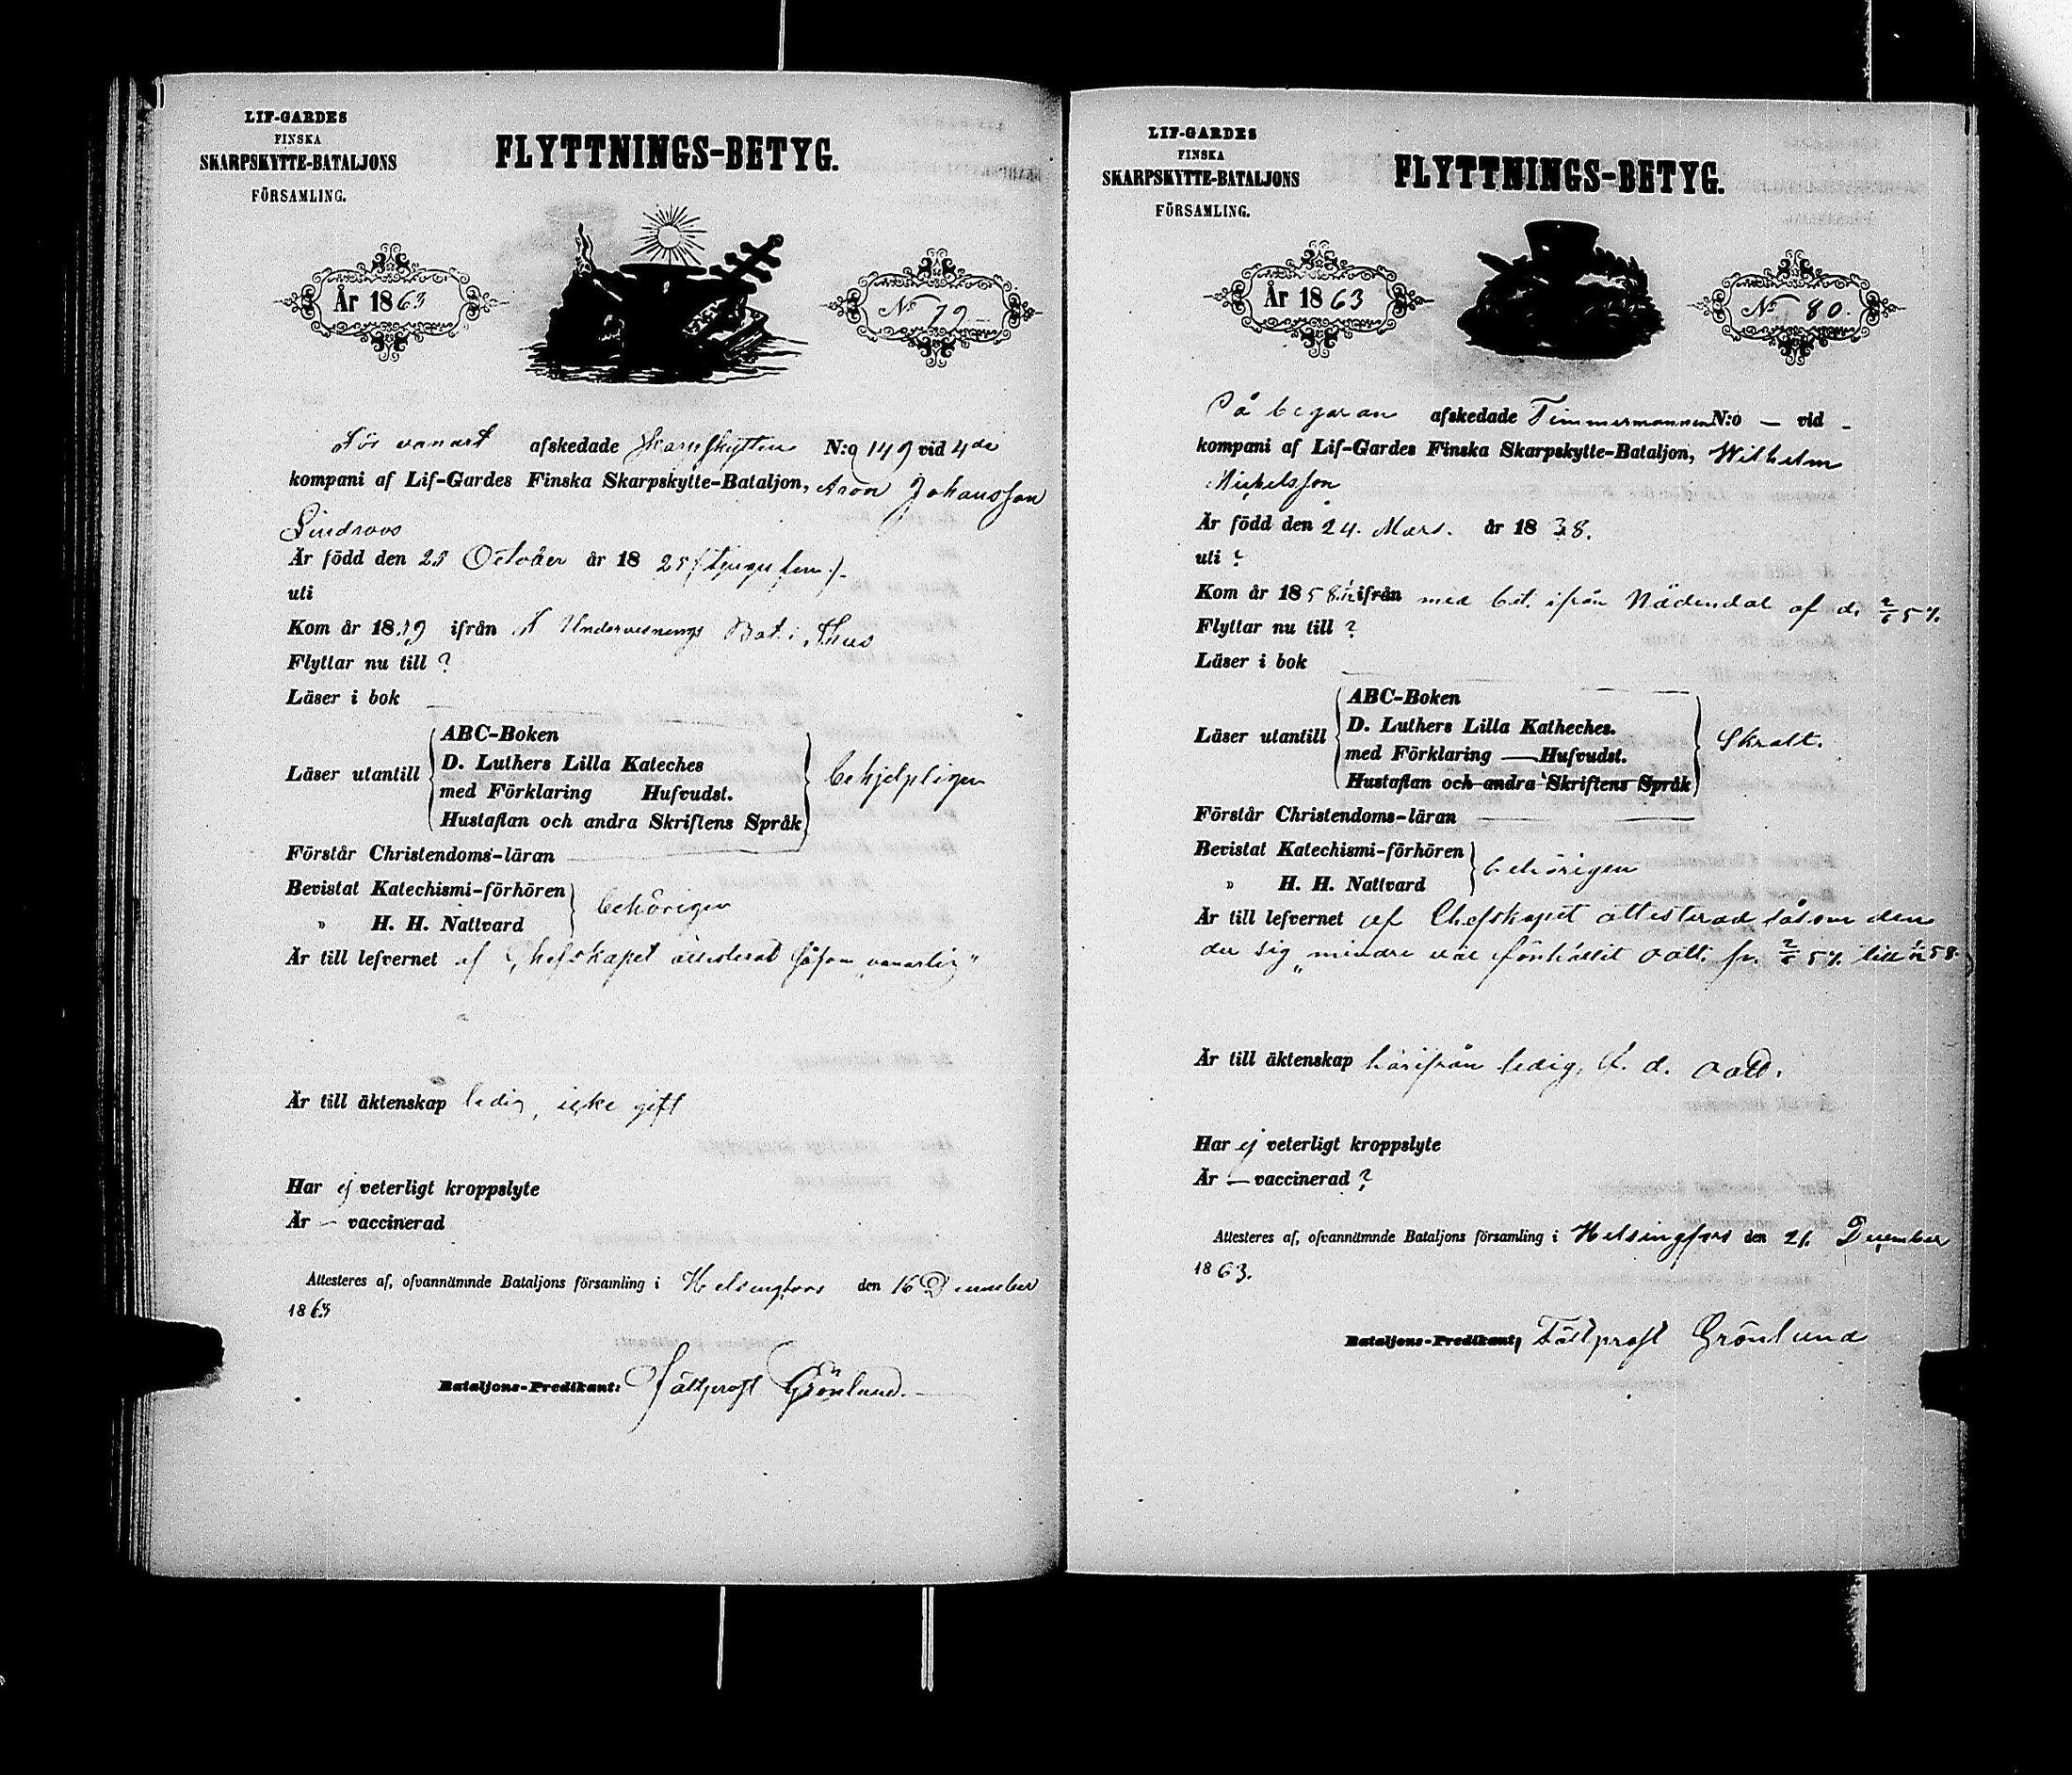 LIF-GARDES
FINSKA
SKARPSKYTTE-BATALJONS
FÖRSAMLING.
FLYTTNINGS-BETYG.
År 1863
No 79
För vanart afskedade Skarpskytten N:o 149 vid 4de
kompani af Lif-Gardes Finska Skarpskytte-Bataljon, Aron Johansson
Lindroos
Är född den 25 October år 18 25 (tjugu fem).
uti
Kom år 18 ifrån Undervisnings Bat. i
Flyttar nu till ?
Läser i bok
Läser utantill
ABC-Boken
D. Luthers Lilla Kateches
med Förklaring Hufvudst.
Hustaflan och andra Skriftens Språk
behjelpligen
Förstår Christendoms-läran
Bevistat Katechismi-förhören
" H. H. Nattvard
behörigen
Är till lefvernet af Chefskapet attesterad såsom „vanartig"
Är till äktenskap ledig, icke gift
Har ej veterligt kroppslyte
Är — vaccinerad
Attesteres af, ofvannämnde Bataljons församling i Helsingfors den 16 December
1863
Bataljons-Predikant: Fältprost Grönlund.
LIF-GARDES
FINSKA
SKARPSKYTTE-BATALJONS
FÖRSAMLING.
FLYTTNINGS-BETYG.
År 1863
No 80.
På begäran afskedade Timmermannen N:o — vid -
kompani af Lif-Gardes Finska Skarpskytte-Bataljon, Wilhelm
Mickelsson
Är född den 24. Mars. år 18 38.
uti ?
Kom år 1858 ifrån med bet. ifrån Nådendal af d. 2/6 57.
Flyttar nu till ?
Läser i bok
Läser utantill
ABC-Boken
D. Luthers Lilla Katheches.
med Förklaring — Hufvudst.
Hustaflan och andra Skriftens Språk
Skralt.
Förstår Christendoms-läran
Bevistat Katechismi-förhören
" H. H. Nattvard
behörigen
Är till lefvernet af Chefskapet attesterad såsom den
der sig „mindre väl förhållit oatt. fr. 2/6 57. till 58.
Är till äktenskap härifrån ledig, f. d. oatt.
Har ej veterligt kroppslyte
Är — vaccinerad ?
Attesteres af, ofvannämnde Bataljons församling i Helsingfors den 21. December
1863.
Bataljons-Predikant, Fältprost Grönlund